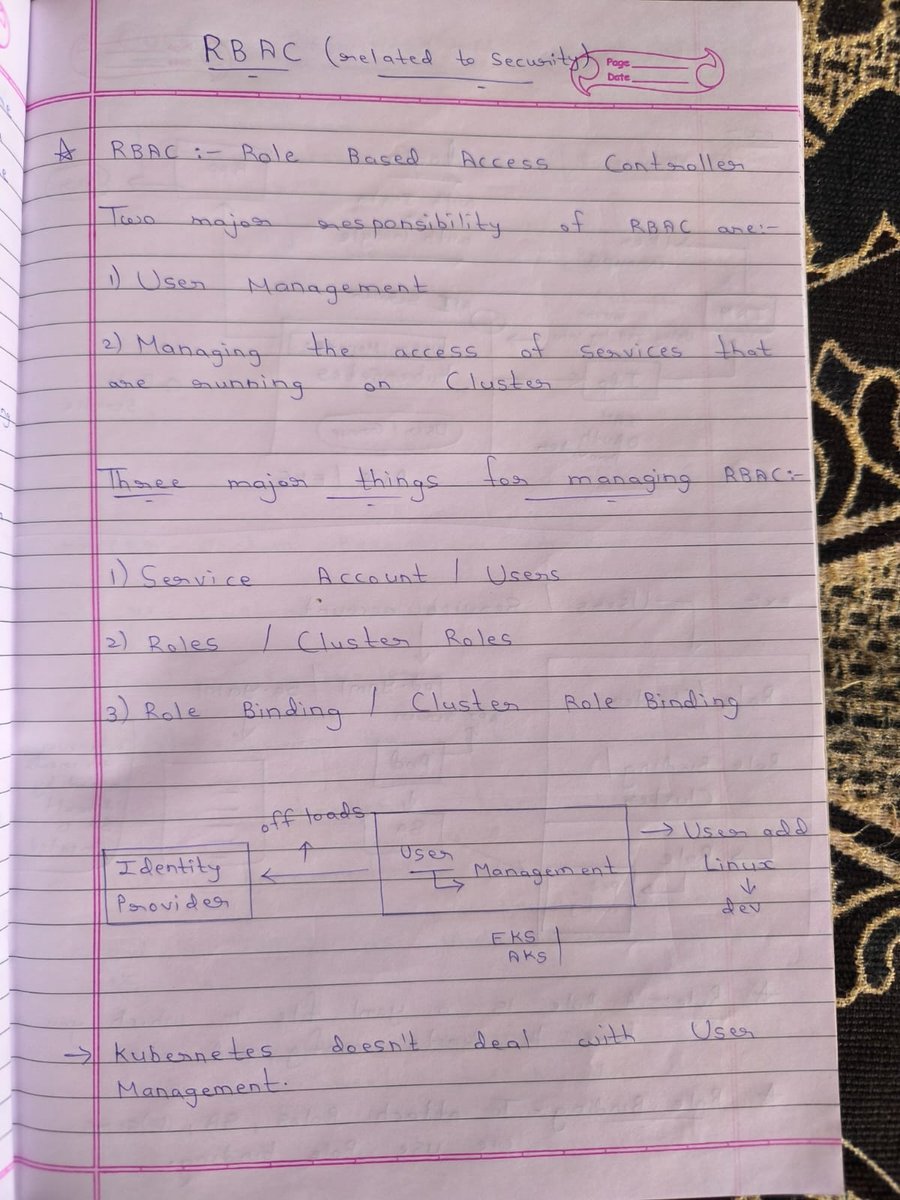 RBAC (related to security)
Page
Date
☆ RBAC :- Role Based Access Controller
Two major responsibility of RBAC are:-
1) User Management
2) Managing the access of services that
are running on Cluster
Three major things for managing RBAC:-
1) Service Account / Users
2) Roles / Cluster Roles
3) Role Binding / Cluster Role Binding
off loads
↑
Identity
Provider
←
User
↳ Management
→ User add
Linux
↓
dev
EKS
AKS
→ Kubernetes doesn't deal with User
Management.